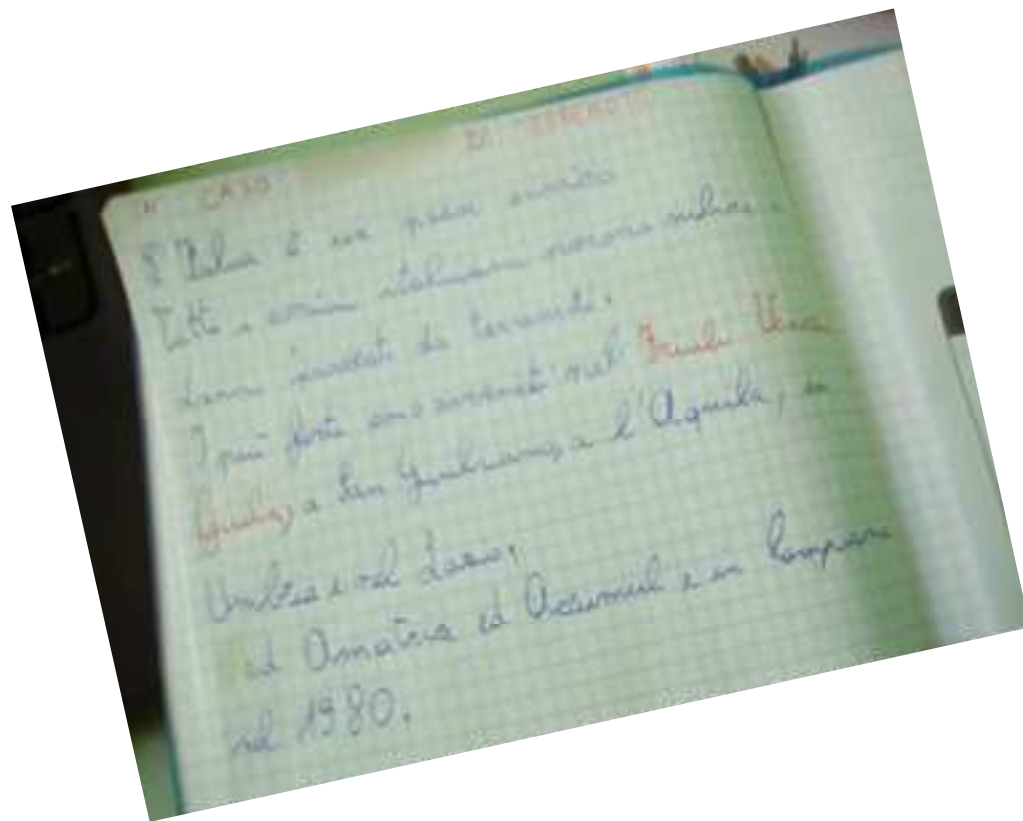 IN CASO DI TERREMOTO
L'Italia è un paese sismico
Tutte le italiani possono subire
danni da terremoti.
I più forti sono avvenuti nel Friuli Venezia
Giulia, a San Giuliano, a l'Aquila, in
Umbria e nel Lazio,
ad Amatrice ed Accumuli e in Campania
nel 1980.